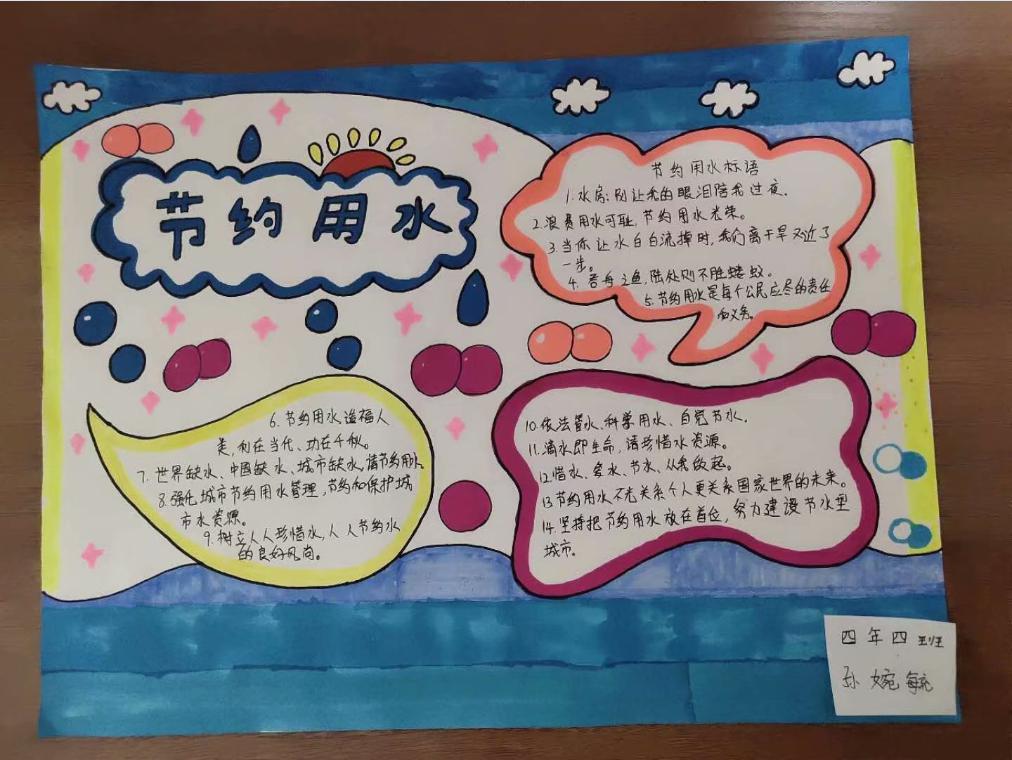 节约用水
节约用水标语
1.水房:别让我的眼泪陪我过夜.
2.浪费用水可耻,节约用水光荣。
3.当你让水白白流掉时,我们离干旱又近了
一步。
4.吞舟之鱼,陆处则不胜蝼蚁。
5.节约用水是每个公民应尽的责任
和义务。
6.节约用水造福人
类,利在当代、功在千秋。
7.世界缺水、中国缺水、城市缺水,请节约用水
8.强化城市节约用水管理,节约和保护城
市水资源。
9.树立人人珍惜水,人人节约水
的良好风尚。
10.依法管水、科学用水、自觉节水.
11.滴水即生命,请珍惜水资源。
12.惜水、爱水、节水、从我做起。
13.节约用水不光关系个人更关系国家世界的未来。
14.坚持把节约用水放在首位,努力建设节水型
城市.
四年四班
孙婉毓